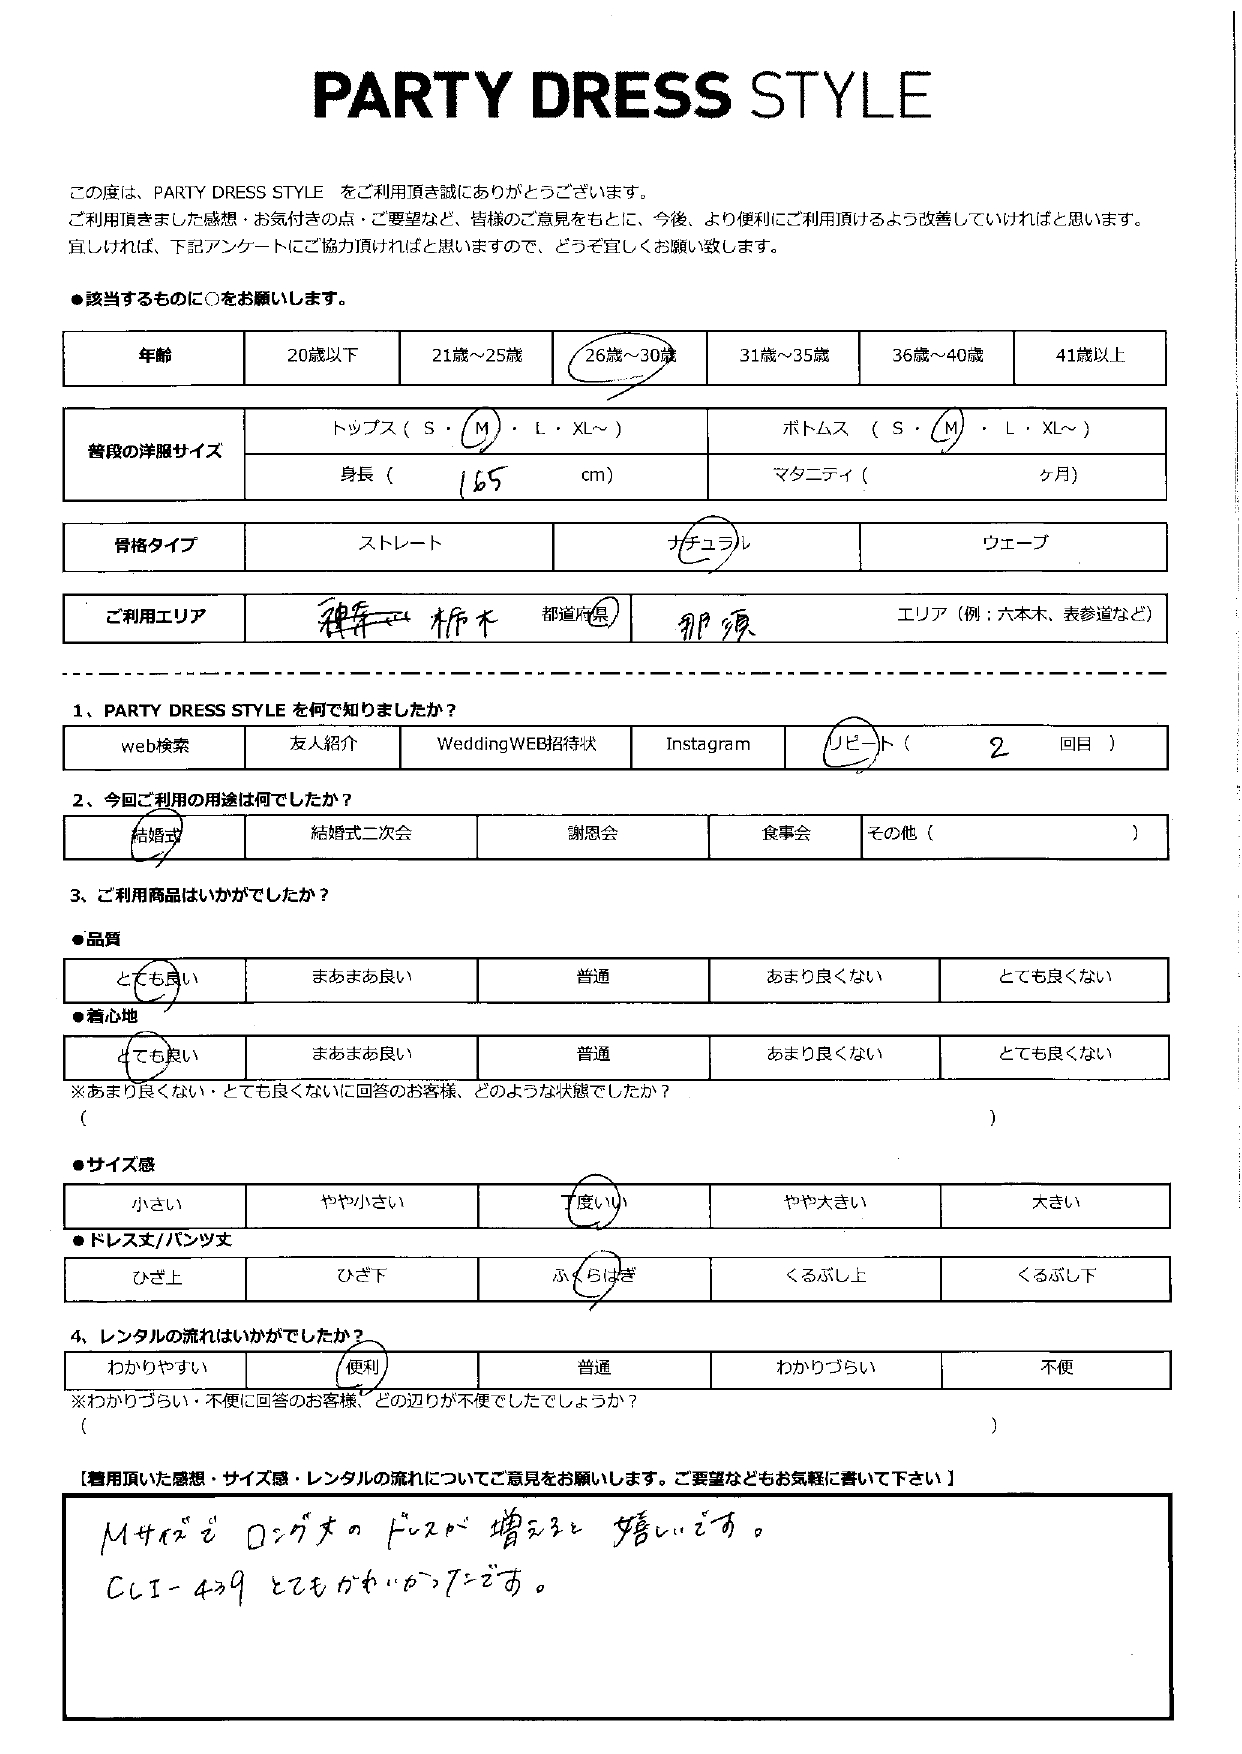 PARTY DRESS STYLE
この度は、PARTY DRESS STYLE をご利用頂き誠にありがとうございます。
ご利用頂きました感想・お気付きの点・ご要望など、皆様のご意見をもとに、今後、より便利にご利用頂けるよう改善していければと思います。
宜しければ、下記アンケートにご協力頂ければと思いますので、どうぞ宜しくお願い致します。
●該当するものに○をお願いします。
年齢 20歳以下 21歳～25歳 26歳～30歳 31歳～35歳 36歳～40歳 41歳以上
普段の洋服サイズ トップス ( S ・ M ・ L ・ XL～ ) ボトムス ( S ・ M ・ L ・ XL～ )
身長 ( 165 cm) マタニティ ( ヶ月)
骨格タイプ ストレート ナチュラル ウェーブ
ご利用エリア 栃木 都道府県 那須 エリア（例：六本木、表参道など）
1、PARTY DRESS STYLE を何で知りましたか？
web検索 友人紹介 WeddingWEB招待状 Instagram リピート ( 2 回目 )
2、今回ご利用の用途は何でしたか？
結婚式 結婚式二次会 謝恩会 食事会 その他 ( )
3、ご利用商品はいかがでしたか？
●品質
とても良い まあまあ良い 普通 あまり良くない とても良くない
●着心地
とても良い まあまあ良い 普通 あまり良くない とても良くない
※あまり良くない・とても良くないに回答のお客様、どのような状態でしたか？
( )
●サイズ感
小さい やや小さい 丁度いい やや大きい 大きい
●ドレス丈/パンツ丈
ひざ上 ひざ下 ふくらはぎ くるぶし上 くるぶし下
4、レンタルの流れはいかがでしたか？
わかりやすい 便利 普通 わかりづらい 不便
※わかりづらい・不便に回答のお客様、どの辺りが不便でしたでしょうか？
( )
【着用頂いた感想・サイズ感・レンタルの流れについてご意見をお願いします。ご要望などもお気軽に書いて下さい 】
Mサイズで ロング丈の ドレスが 増えると 嬉しいです。
CLI-439 とてもかわいかったです。